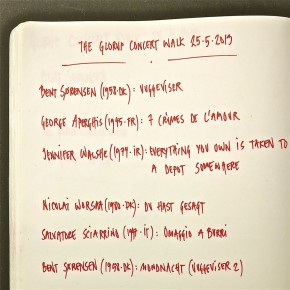 THE GLORUP CONCERT WALK 25.5.2013
BENT SØRENSEN (1958·DK): VUGGEVISER
GEORGE APERGHIS (1945·FR): 7 CRIMES DE L'AMOUR
JENNIFER WALSHE (1974·IR): EVERYTHING YOU OWN IS TAKEN TO
A DEPOT SOMEWHERE
NICOLAI WORSAA (1980·DK): DU HAST GESAGT
SALVATORE SCIARRINO (·IT): OMAGGIO A BURRI
BENT SØRENSEN (1958·DK): MONDNACHT (VUGGEVISER 2)